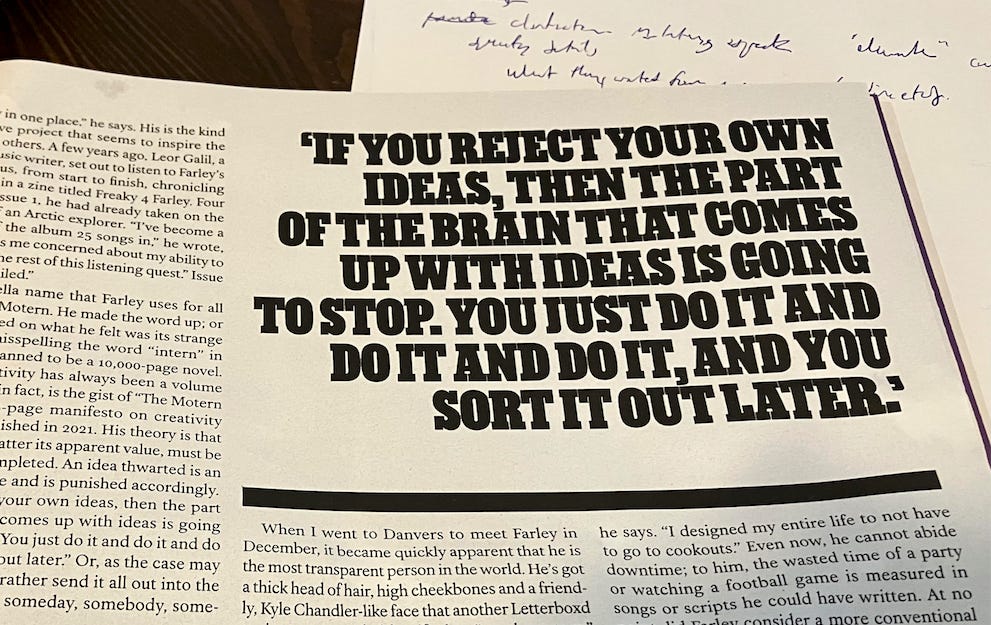 "elements"
what they wanted from
in one place," he says. His is the kind
ve project that seems to inspire the
others. A few years ago, Leor Galil, a
usic writer, set out to listen to Farley's
us, from start to finish, chronicling
in a zine titled Freaky 4 Farley. Four
ssue 1, he had already taken on the
f an Arctic explorer. "I've become a
f the album 25 songs in," he wrote.
s me concerned about my ability to
he rest of this listening quest." Issue
iled."
ella name that Farley uses for all
Motern. He made the word up; or
ed on what he felt was its strange
isspelling the word "intern" in
anned to be a 10,000-page novel.
tivity has always been a volume
in fact, is the gist of "The Motern
-page manifesto on creativity
ished in 2021. His theory is that
atter its apparent value, must be
mpleted. An idea thwarted is an
e and is punished accordingly.
your own ideas, then the part
comes up with ideas is going
You just do it and do it and do
out later." Or, as the case may
rather send it all out into the
someday, somebody, some-
'IF YOU REJECT YOUR OWN
IDEAS, THEN THE PART
OF THE BRAIN THAT COMES
UP WITH IDEAS IS GOING
TO STOP. YOU JUST DO IT AND
DO IT AND DO IT, AND YOU
SORT IT OUT LATER.'
When I went to Danvers to meet Farley in
December, it became quickly apparent that he is
the most transparent person in the world. He's got
a thick head of hair, high cheekbones and a friend-
ly, Kyle Chandler-like face that another Letterboxd
he says. "I designed my entire life to not have
to go to cookouts." Even now, he cannot abide
downtime; to him, the wasted time of a party
or watching a football game is measured in
songs or scripts he could have written. At no
Farley consider a more conventional